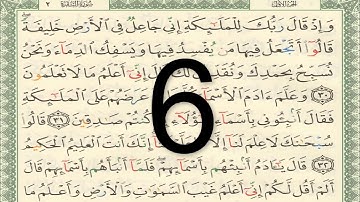 وَإِذْ قَالَ رَبُّكَ لِلْمَلَٰٓئِكَةِ إِنِّى جَاعِلٌ فِى ٱلْأَرْضِ خَلِيفَةً
قَالُوٓا۟ أَتَجْعَلُ فِيهَا مَن يُفْسِدُ فِيهَا وَيَسْفِكُ ٱلدِّمَآءَ وَنَحْنُ
نُسَبِّحُ بِحَمْدِكَ وَنُقَدِّسُ إِنِّىٓ أَعْلَمُ مَا لَا تَعْلَمُونَ
٣٠ وَعَلَّمَ ءَادَمَ ٱلْأَسْمَآءَ عَرَضَهُمْ عَلَى ٱلْمَلَٰٓئِكَةِ
فَقَالَ أَنۢبِـُٔونِى بِأَسْمَآءِ كُنتُمْ صَٰدِقِينَ ٣١
سُبْحَٰنَكَ لَا عِلْمَ لَنَآ إِنَّكَ أَنتَ ٱلْعَلِيمُ ٱلْحَكِيمُ
٣٢ قَالَ يَٰٓـَٔادَمُ أَنۢبِئْهُم بِأَسْمَآئِهِمْ فَلَمَّآ أَنۢبَأَهُم بِأَسْمَآئِهِمْ قَالَ
أَلَمْ أَقُل لَّكُمْ إِنِّىٓ أَعْلَمُ غَيْبَ ٱلسَّمَٰوَٰتِ وَٱلْأَرْضِ وَأَعْلَمُ مَا
6